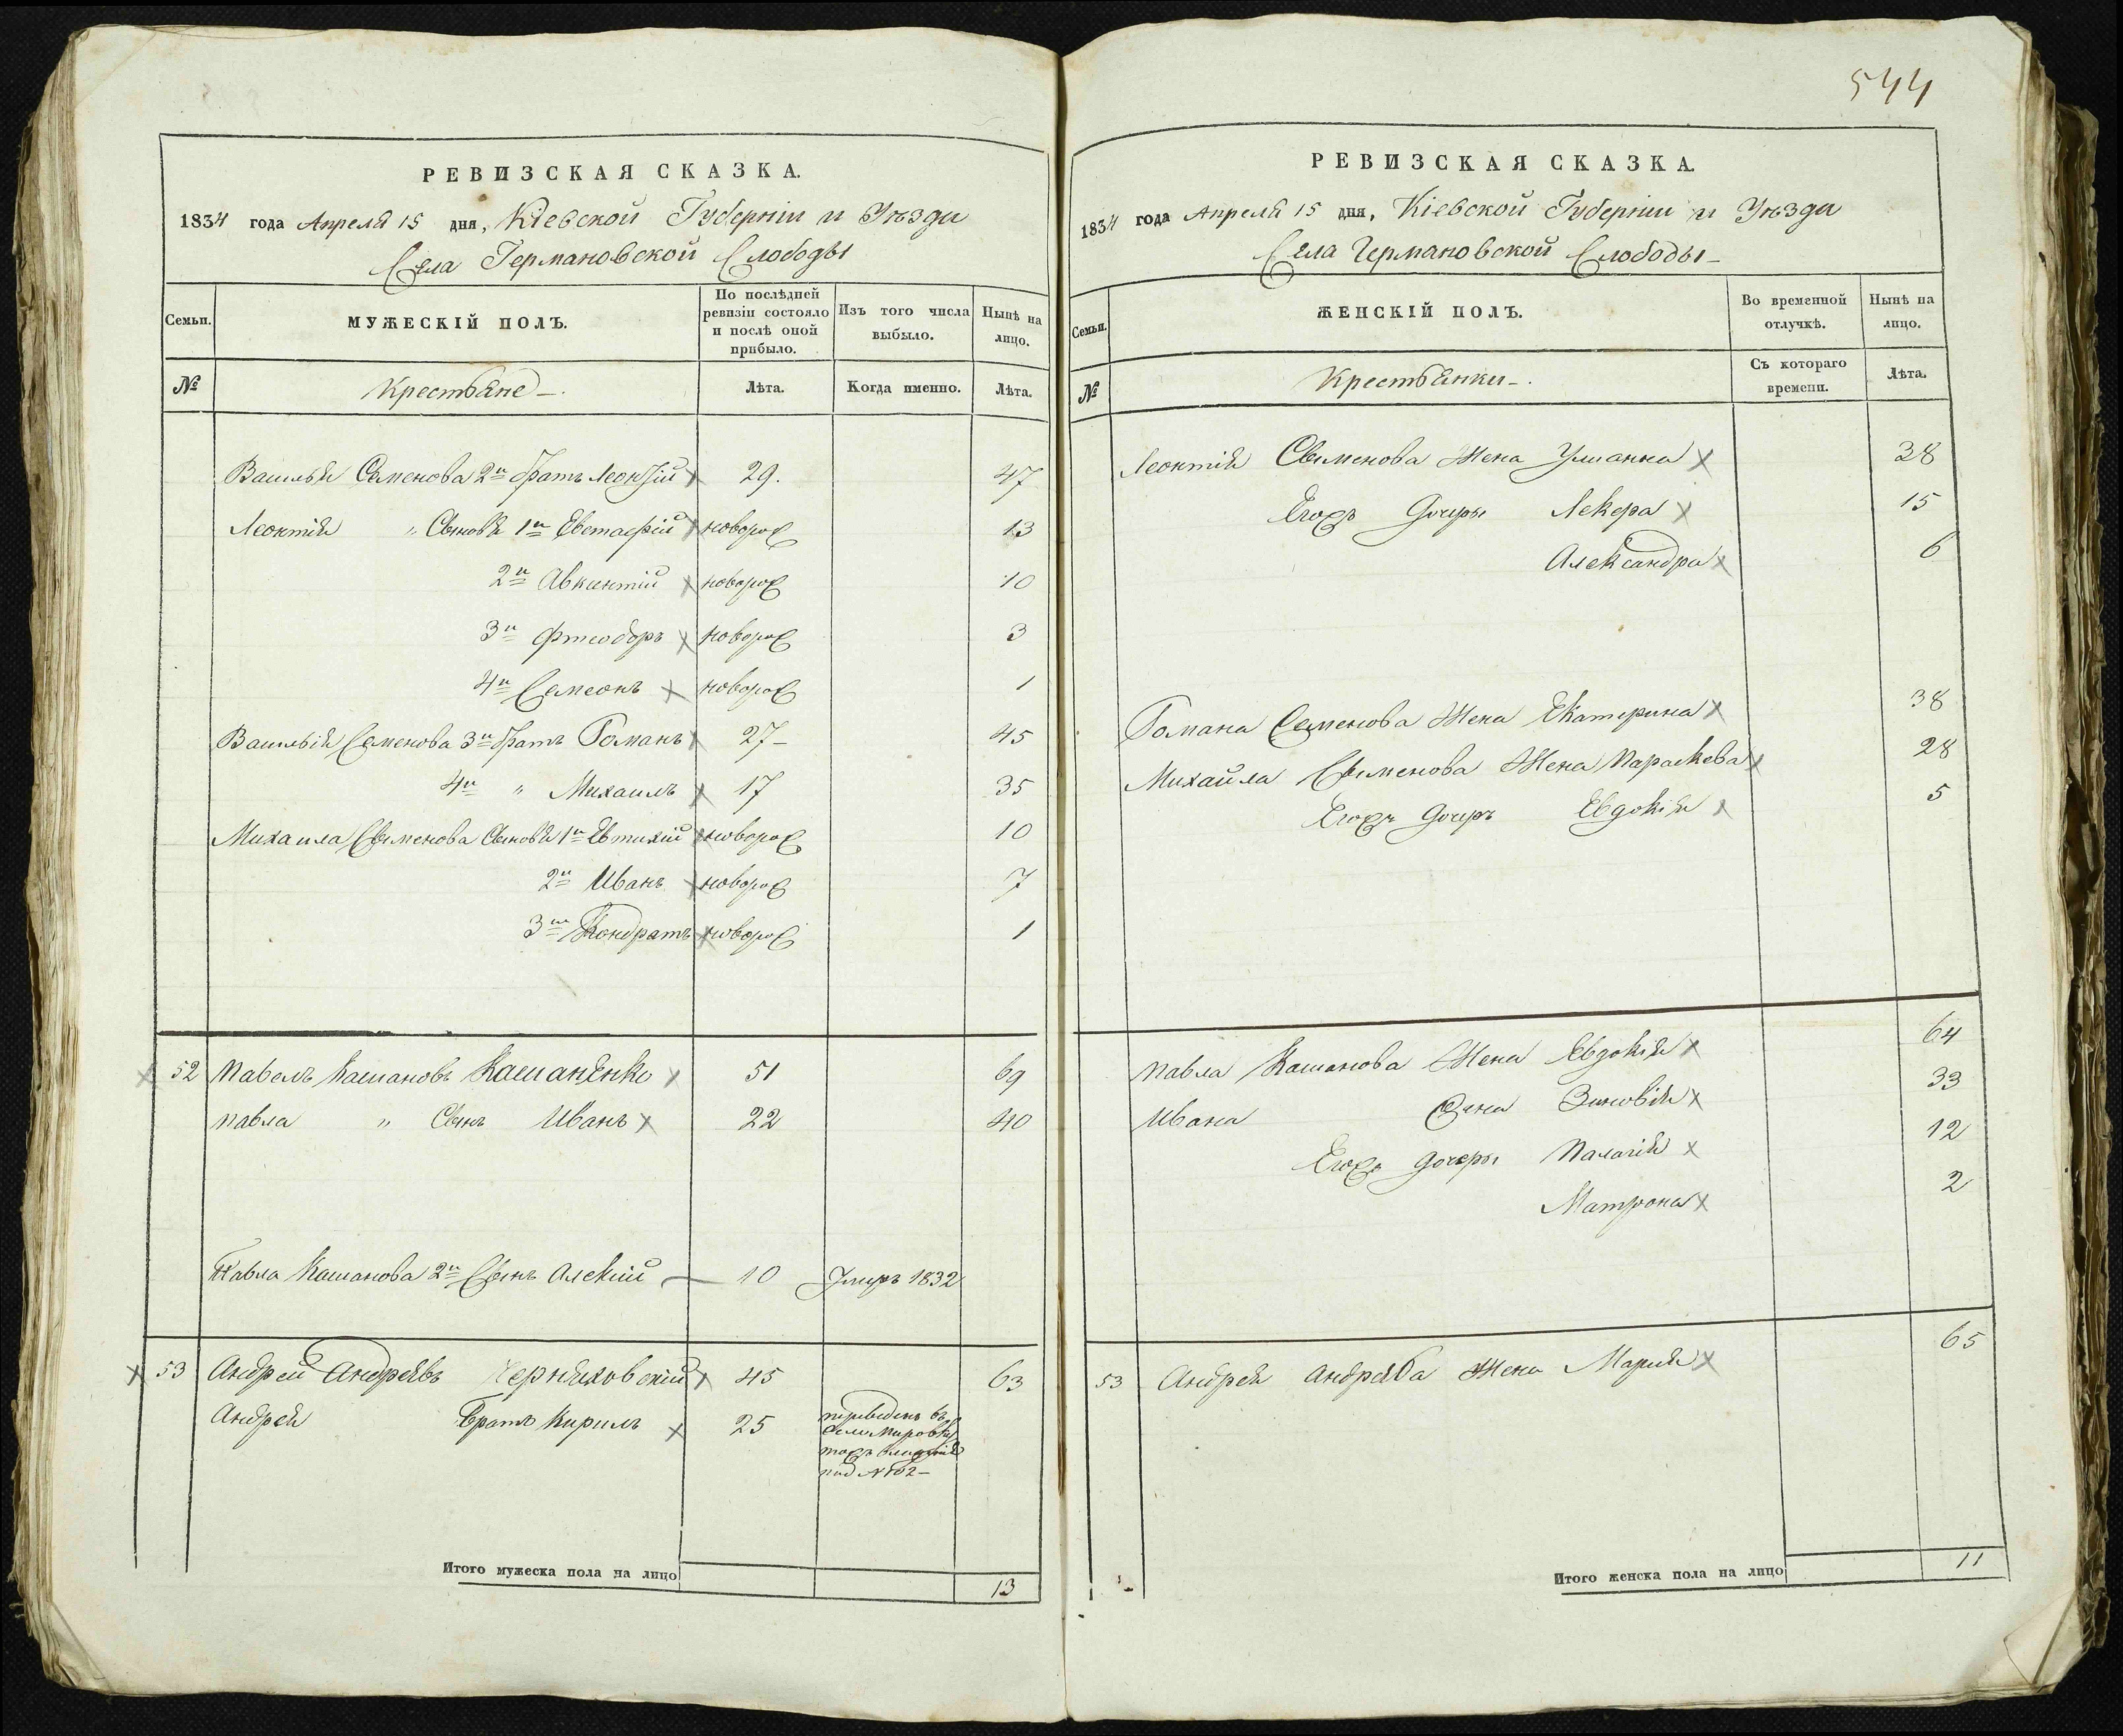 544
РЕВИЗСКАЯ СКАЗКА.
1834 года Апреля 15 дня, Кіевской Губерніи и Уѣзда
Села Германовской Слободы
Семьи.
МУЖЕСКІЙ ПОЛЪ.
По послѣдней ревизіи состояло и послѣ оной прибыло.
Изъ того числа выбыло.
Нынѣ на лицо.
№
Крестьяне
Лѣта.
Когда именно.
Лѣта.
Василія Семенова 2й братъ Леонтій 29. 47
Леонтія " Сыновья 1й Евстафій новорож 13
2й Авксентій новорож 10
3й Фтеодоръ новорож 3
4й Семеонъ новорож 1
Василія Семенова 3й братъ Романъ 27 45
4й " Михаилъ 17 35
Михаила Семенова Сыновья 1й Евтихій новорож 10
2й Иванъ новорож 7
3й Кондратъ новорож 1
52 Павелъ Кашановъ Кашаненко 51 69
Павла " Сынъ Иванъ 22 40
Павла Кашанова 2й Сынъ Алексій 10 Умеръ 1832
53 Андрей Андреевъ Черняховскій 45 63
Андрея Братъ Кирилъ 25 переведенъ въ
село
под №
Итого мужеска пола на лицо 13
РЕВИЗСКАЯ СКАЗКА.
1834 года Апреля 15 дня, Кіевской Губерніи и Уѣзда
Села Германовской Слободы
Семьи.
ЖЕНСКІЙ ПОЛЪ.
Во временной отлучкѣ.
Нынѣ на лицо.
№
Крестьянки
Съ котораго времени.
Лѣта.
Леонтія Семенова Жена Ульянна 38
Егожъ Дочеры 15
Александра 6
Романа Семенова Жена Екатерина 38
Михайла Семенова Жена Параскева 28
Егожъ Дочеръ Евдокія 5
Павла Кашанова Жена Евдокія 64
Ивана Жена Зиновія 33
Егожъ дочеры Палагія 12
Матрона 2
53 Андрея Андреева Жена Марія 65
Итого женска пола на лицо 11